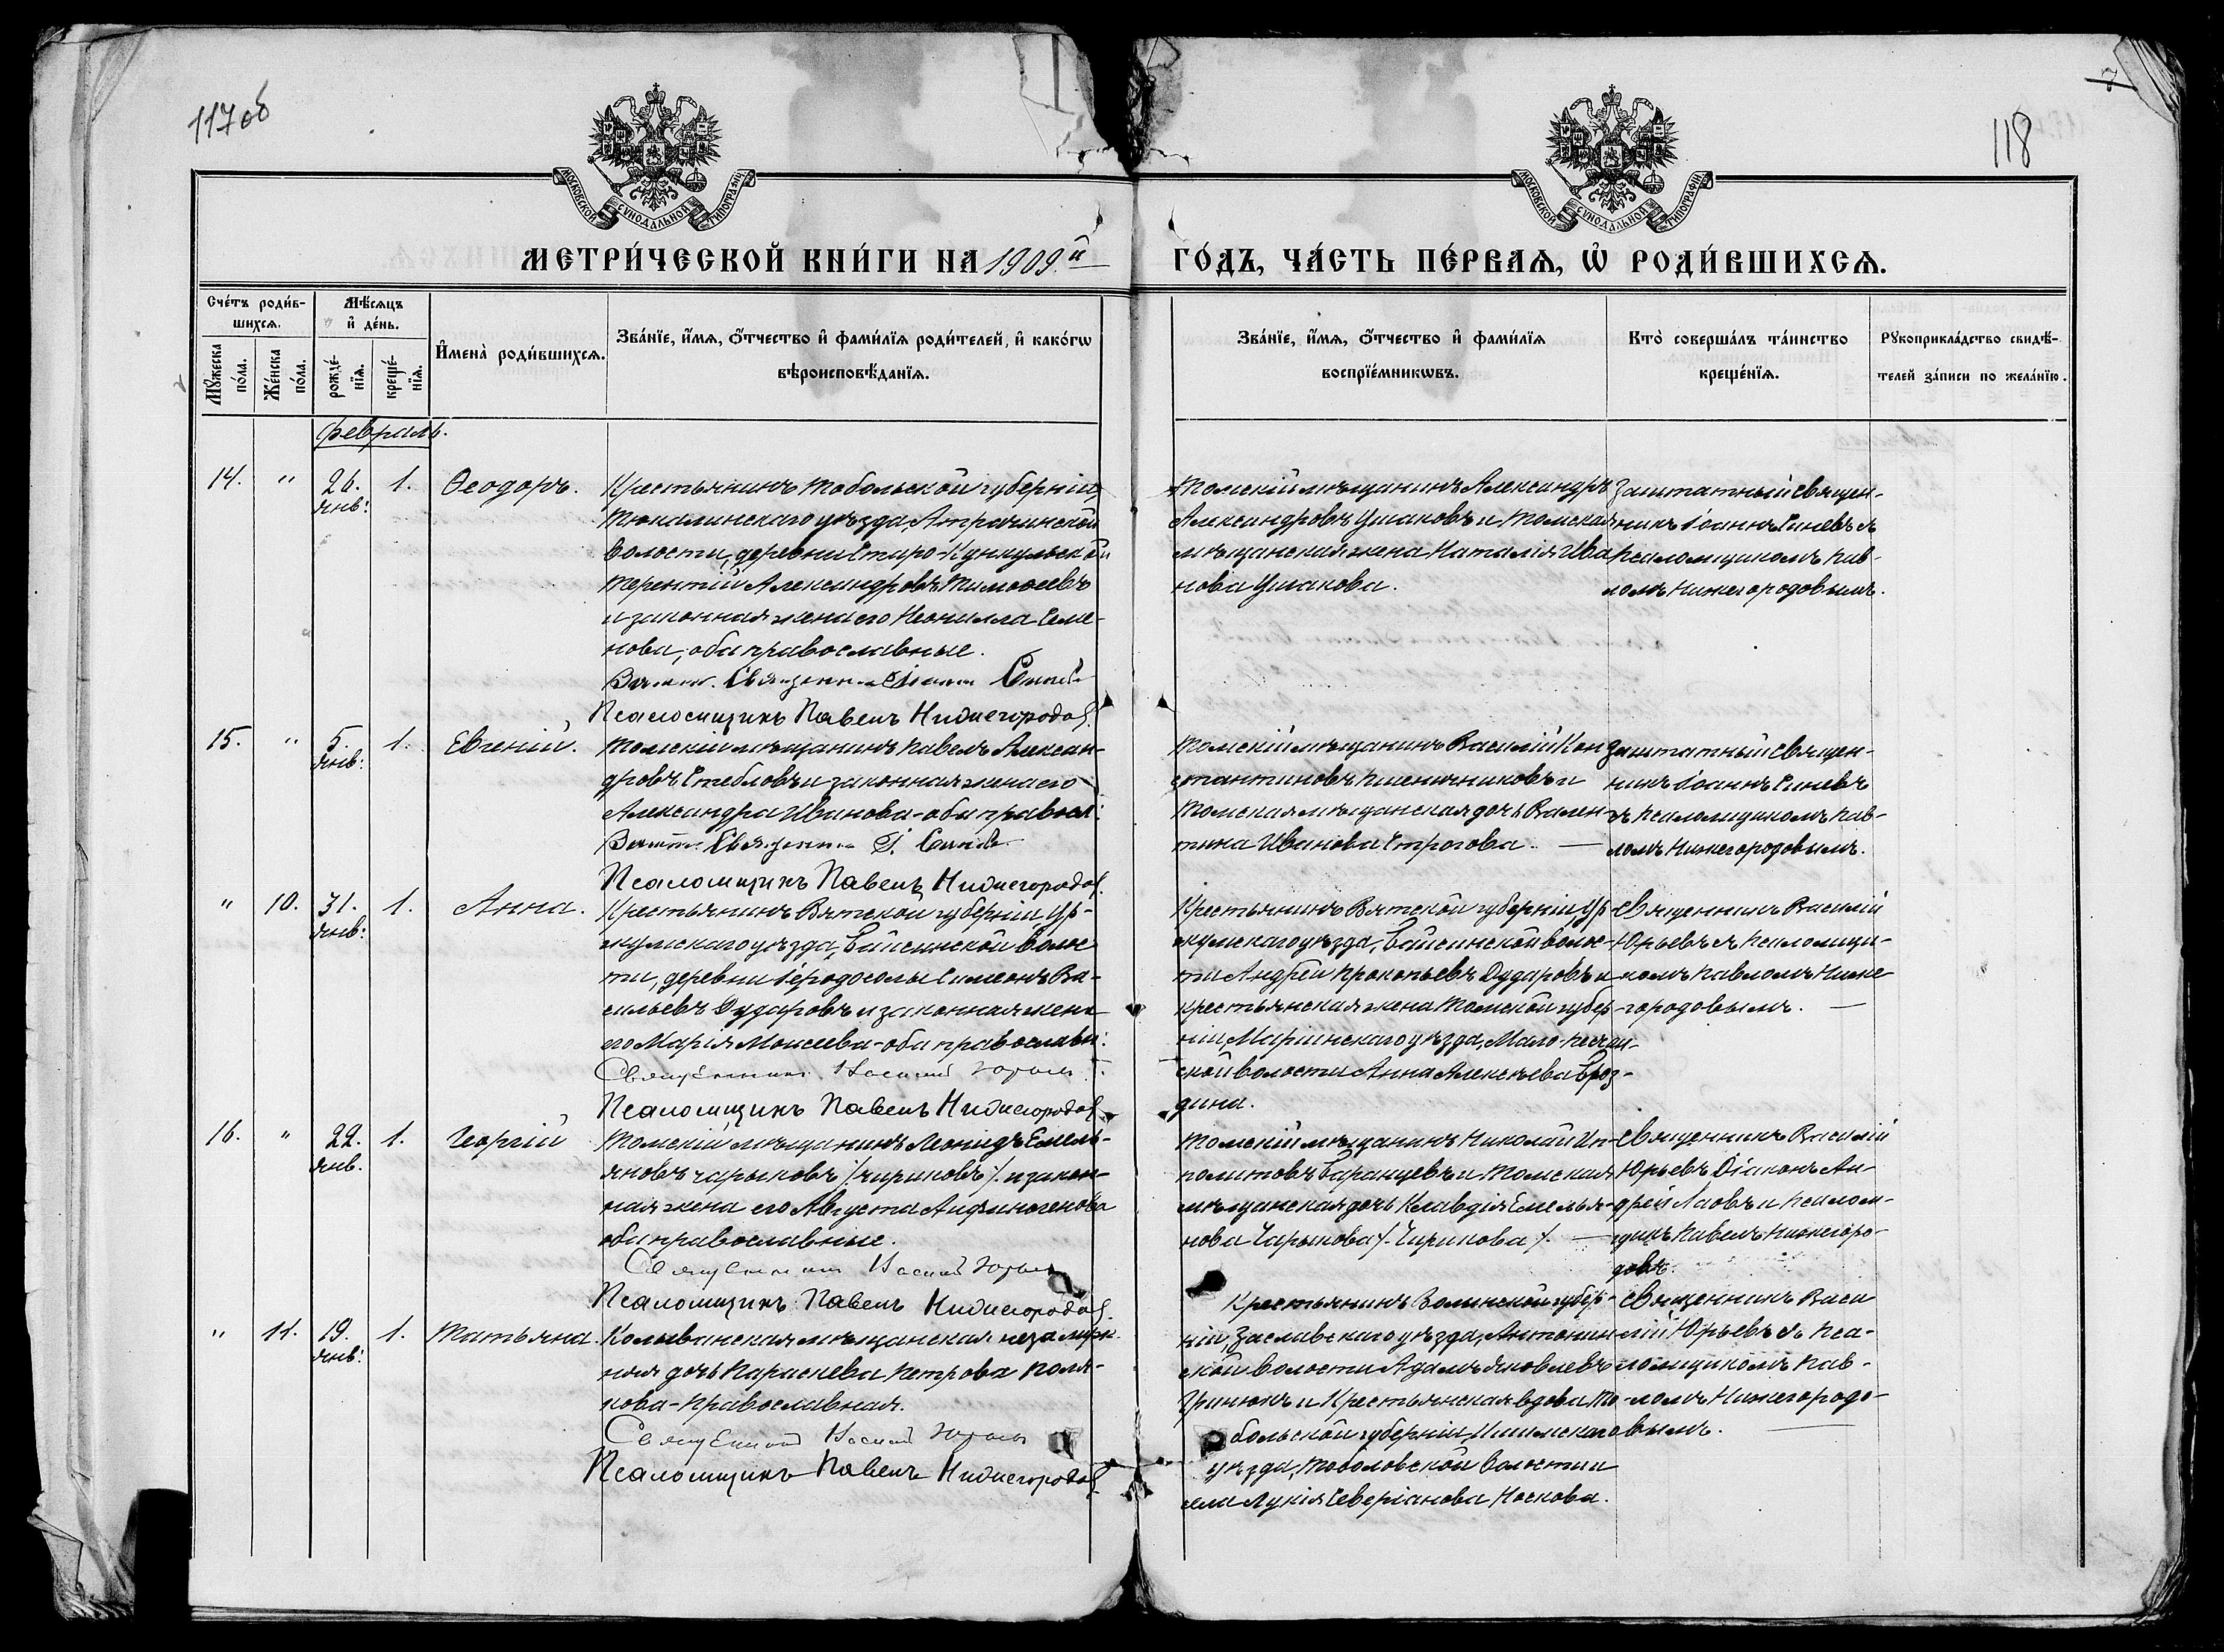 117 об
118
МОСКОВСКОЙ СѴНОДАЛЬНОЙ ТИПОГРАФІИ
МОСКОВСКОЙ СѴНОДАЛЬНОЙ ТИПОГРАФІИ
МЕТРИ́ЧЕСКОЙ КНИ́ГИ НА 1909й
ГО́ДЪ, ЧА́СТЬ ПЕ́РВАѦ, Ѡ҆ РОДИ́ВШИХСѦ.
Сче́тъ роди́в-
шихсѧ.
Мꙋ́жеска
по́ла.
Же́нска
по́ла.
Мѣ́сѧцъ
и҆ де́нь.
рожде́-
нїѧ.
креще́-
нїѧ.
И҆мена̀ роди́вшихсѧ.
Зва́нїе, и҆́мѧ, ѻ҆́тчество и҆ фами́лїѧ роди́телей, и҆ како́гѡ
вѣроисповѣ́данїѧ.
Зва́нїе, и҆́мѧ, ѻ҆́тчество и҆ фами́лїѧ
воспрїе́мникѡвъ.
Кто̀ соверша́лъ та́инство
креще́нїѧ.
Рꙋкоприкла́дство свидѣ́-
телей за́писи по жела́нїю.
февраль.
14. " 26. 1. Ѳеодоръ.
янв:
Крестьянинъ Тобольской губерніи,
Тюкалинскаго уѣзда, Атрачинской
волости, деревни Старо-Кункульской
Терентій Александровъ Тимоѳеевъ
и законная жена его Неонилла Семе-
нова, оба православные.
Священникъ Іоаннъ
Псаломщикъ Павелъ Нижегородов.
Томскій мѣщанинъ Александръ
Александровъ Ушаковъ и Томская
мѣщанская жена Наталія Ива
нова Ушакова.
Заштатный священ-
никъ Іоаннъ Синевъ съ
псаломщикомъ Пав-
ломъ Нижегородовымъ.
15. " 5. 1. Евгеній.
янв:
Томскій мѣщанинъ Павелъ Алексан-
дровъ Стебловъ и законная жена его
Александра Иванова - оба правосл:
Священникъ І.
Псаломщикъ Павелъ Нижегородов.
Томскій мѣщанинъ Василій Кон
стантиновъ Пшеничниковъ и
Томская мѣщанская дочь Вален-
тина Иванова Строгова. —
Заштатный священ-
никъ Іоаннъ Синевъ
съ псаломщикомъ Пав-
ломъ Нижегородовымъ.
" 10. 31. 1. Анна.
янв:
Крестьянинъ Вятской губерніи Ур-
жумскаго уѣзда, Байсинской волос
ти, деревни Симеонъ Ва-
сильевъ Дударовъ и законная жена
его Марія Моисеева - оба православн:
Священникъ Василій Юрьевъ
Псаломщикъ Павелъ Нижегородов.
Крестьянинъ Вятской губерніи Ур
жумскаго уѣзда, Байсинской волос-
ти Андрей Прокопьевъ Дударовъ и
крестьянская жена Томской губер-
ніи, Маріинскаго уѣзда, Мало-Песчан-
ской волости Анна Алексѣева Броз-
дина.
Священникъ Василій
Юрьевъ съ псаломщи-
комъ Павломъ Ниже
городовымъ. —
16. " 22. 1. Георгій
янв.
Томскій мѣщанинъ Леонидъ Емель-
яновъ Чарыковъ /:Чириковъ:/ и закон-
ная жена его Августа Анфиногенова
оба православные.
Священникъ Василій Юрьевъ
Псаломщикъ Павелъ Нижегородов.
Томскій мѣщанинъ Николай Ип-
политовъ Баранцевъ и Томская
мѣщанская дочь Клавдія Емелья-
нова Чарыкова /. Чирикова /. —
Священникъ Василій
Юрьевъ Діаконъ Ан-
дрей Лаовъ и псалом-
щикъ Павелъ Нижегоро-
довъ.
" 11. 19. 1. Татьяна.
янв:
Колыванская мѣщанская незамуж-
няя дочь Параскева Петрова Поля-
кова - православная.
Священникъ Василій Юрьевъ
Псаломщикъ Павелъ Нижегородов.
Крестьянинъ Волынской губер-
ніи, Заславскаго уѣзда, Антонин-
ской волости Адамъ Яковлевъ
Гринюкъ и крестьянская вдова То
больской губерніи, Ишимскаго
уѣзда, Тоболовской волости и
села Лукія Северіанова Носкова.
Священникъ Васи
лій Юрьевъ съ пса-
ломщикомъ Пав-
ломъ Нижегородо-
вымъ. —